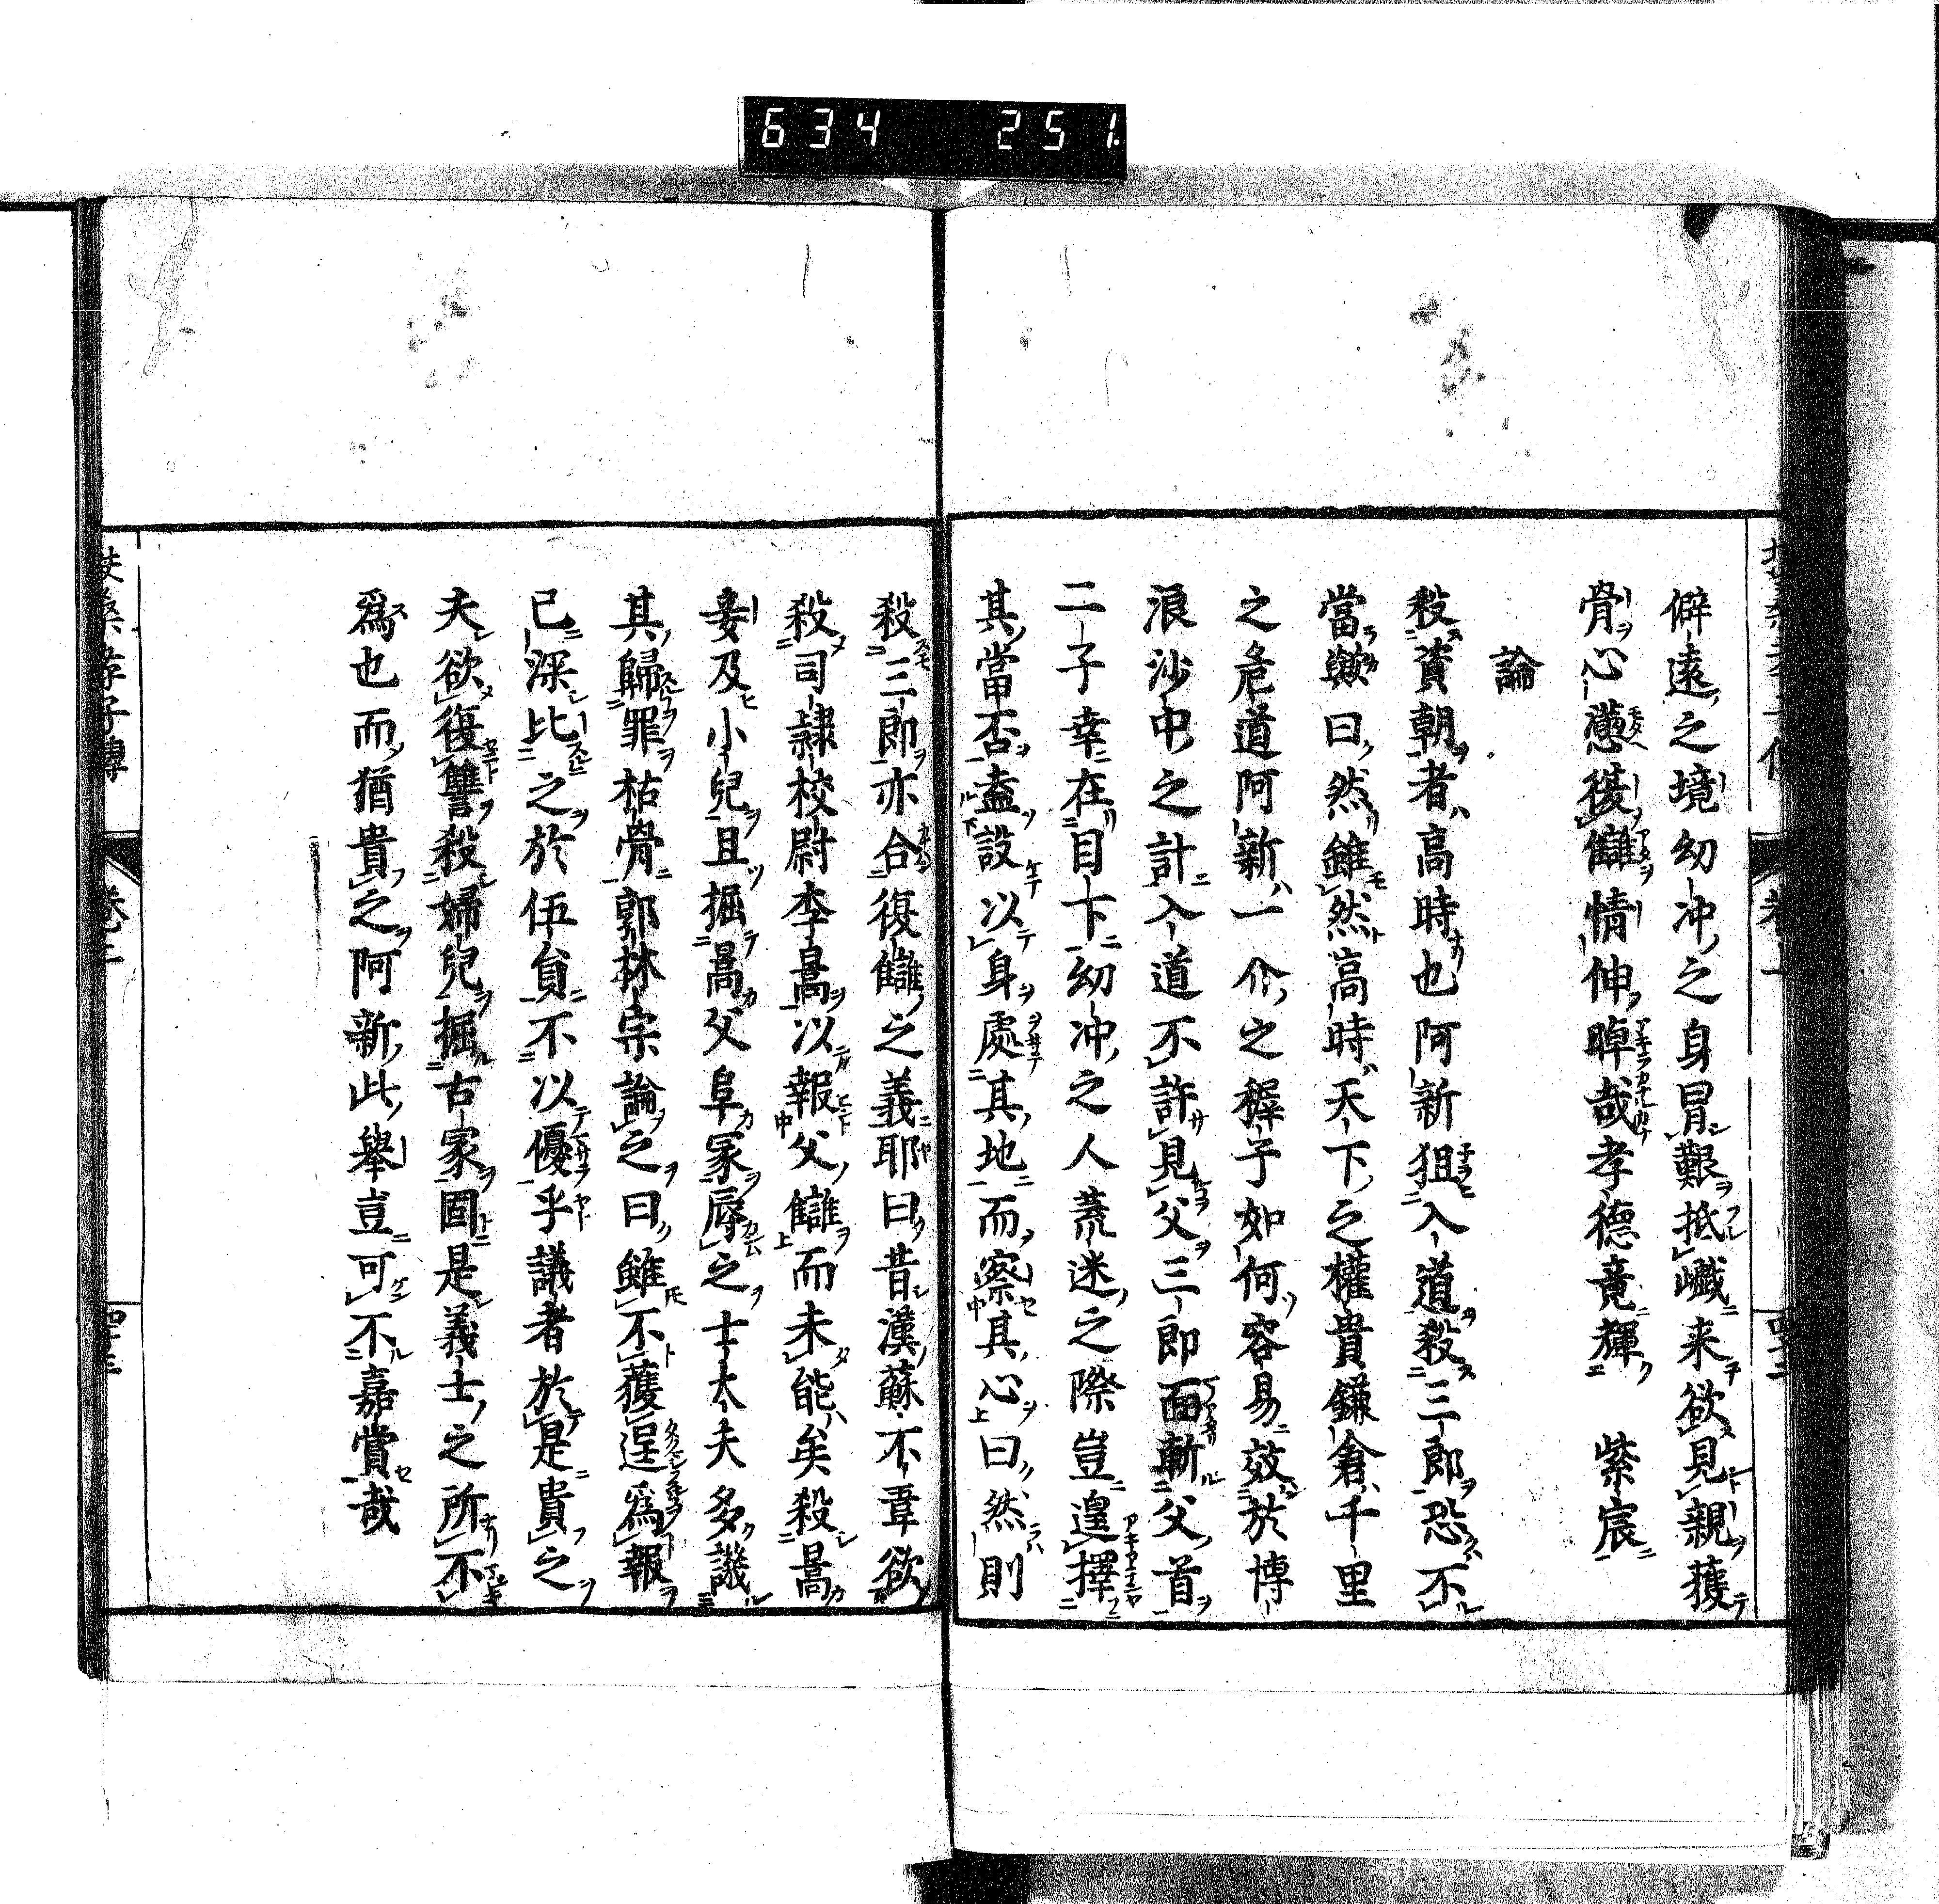 634 251
僻遠之境幼冲之身冒艱抵巇来欲見親獲
骨心懣後讎情伸晫哉孝德竟輝 紫宸
論
殺資朝者高時也阿新狙入道殺三郎恐不
當歟曰然雖然高時天下之權貴鎌倉千里
之危道阿新一介之穉子如何容易效於博
浪沙中之計入道不許見父三郎面斬父首
二子幸在目下幼冲之人荒迷之際豈遑擇
其當否盍設以身處其地而察其心曰然則
殺三郎亦合復讎之義耶曰昔漢蘇不韋欲
殺司隷校尉李暠以報父讎而未能矣殺暠
妾及小兒且掘暠父阜冢辱之士大夫多譏
其歸罪枯骨郭林宗論之曰雖不獲逞爲報
已深比之於伍員不以優乎議者於是貴之
夫欲復讐殺婦兒掘古冢固是義士之所不
爲也而猶貴之阿新此舉豈可不嘉賞哉
扶桑孝子傳 卷二